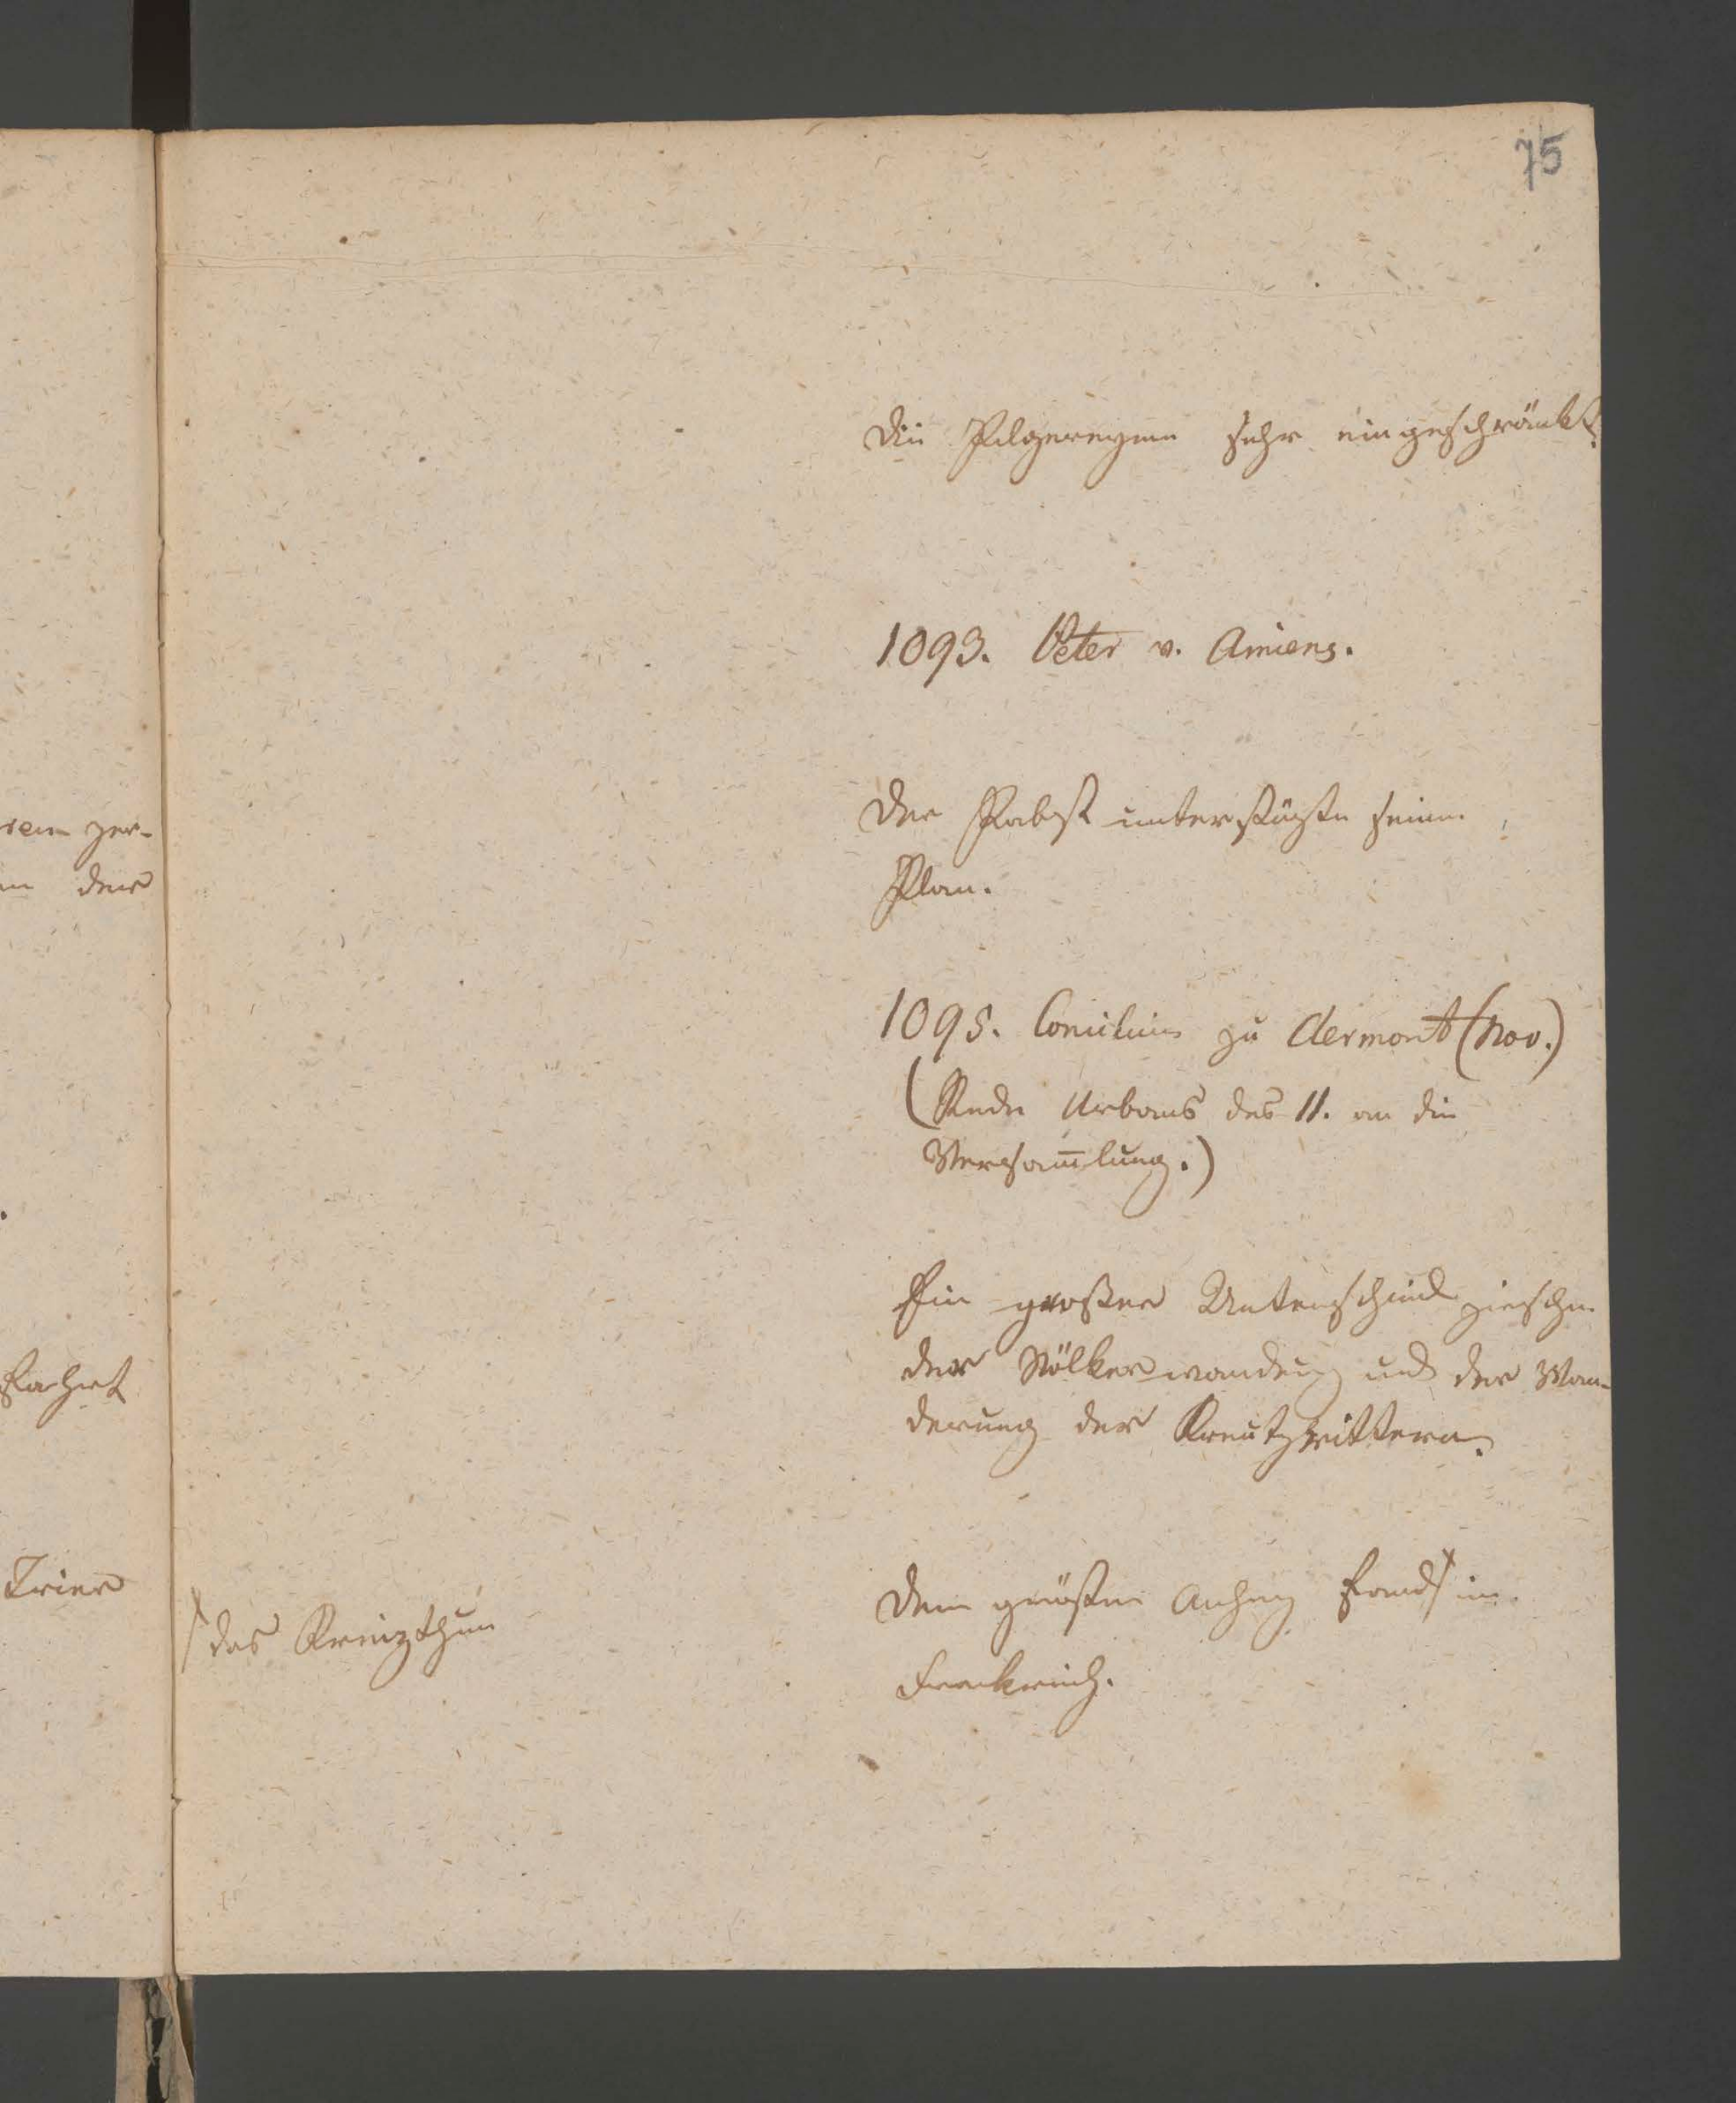 75
Die Pilgereyen sehr eingeschränkt.
1093. Peter v. Amiens.
Der Pabst unterstüzte seinen
Plan.
1095. Concilium zu Clermont (Nov.)
(Rede Urbans des II. an die
Versam̅lung.)
Ein großer Unterschied zwischen
der Völkerwandrung und der Wan-
derung der Kreutzrittern.
Den größten Anhang fand / in
Frankreich.
/ das Kreuzthum
ren zer-
der
fahrt
Trier